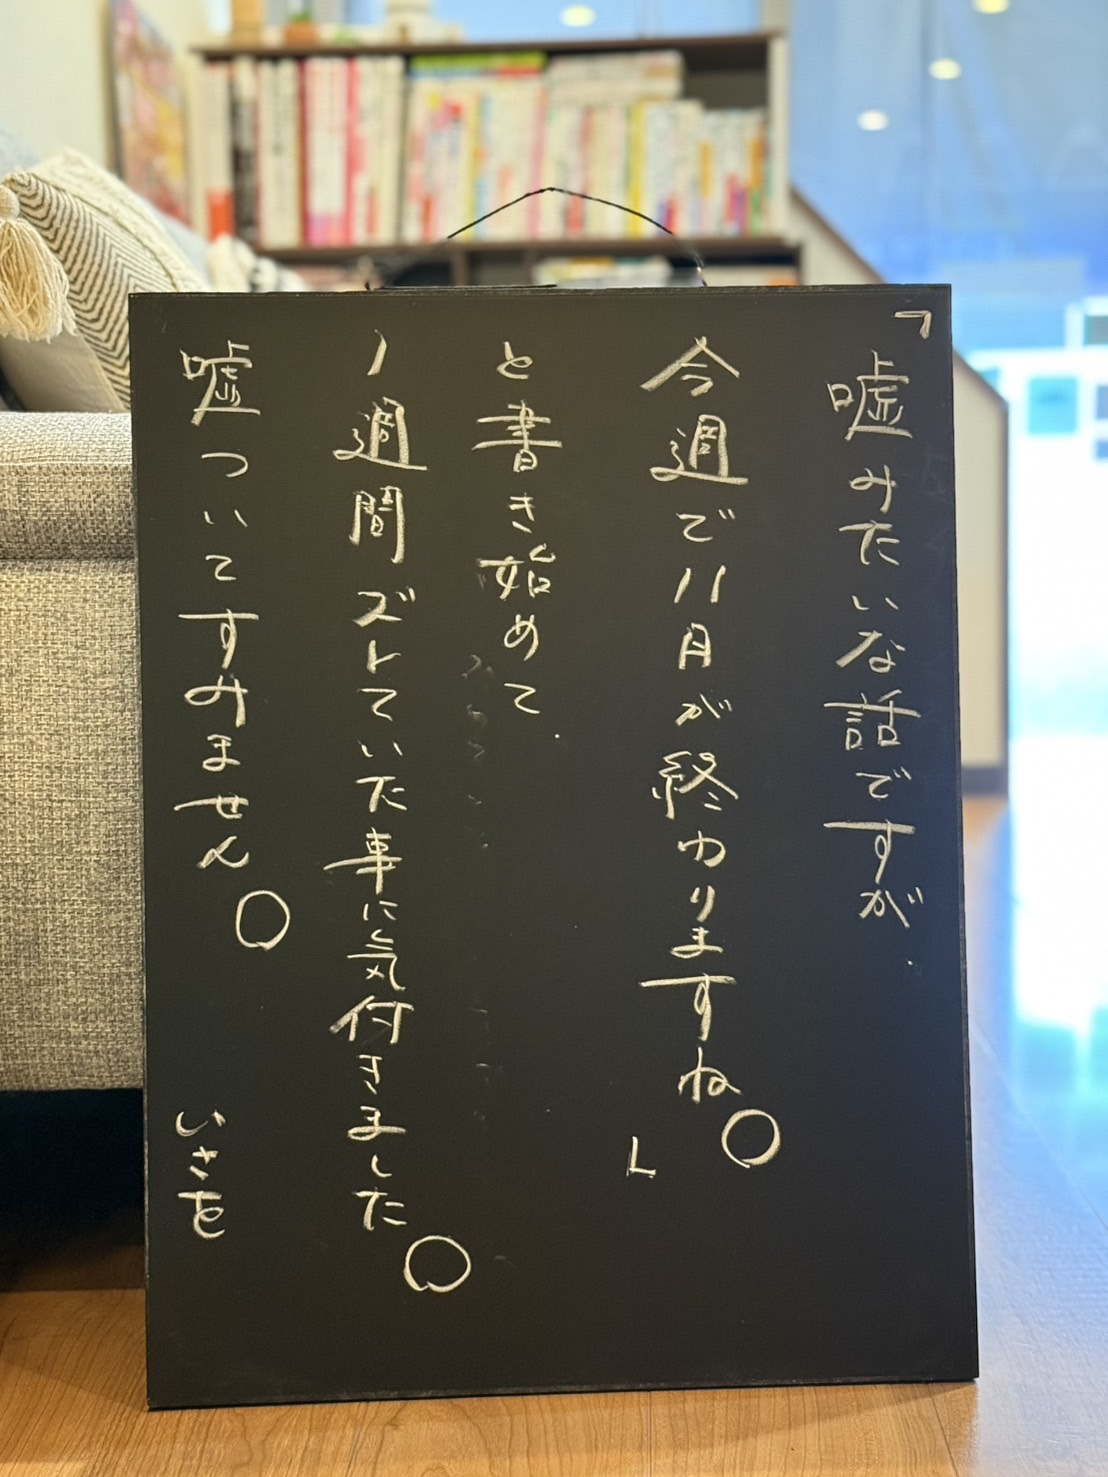 「嘘みたいな話ですが、
今週で11月が終わりますね。」
と書き始めて、
1週間ズレていた事に気付きました。
嘘ついてすみません。
いさを